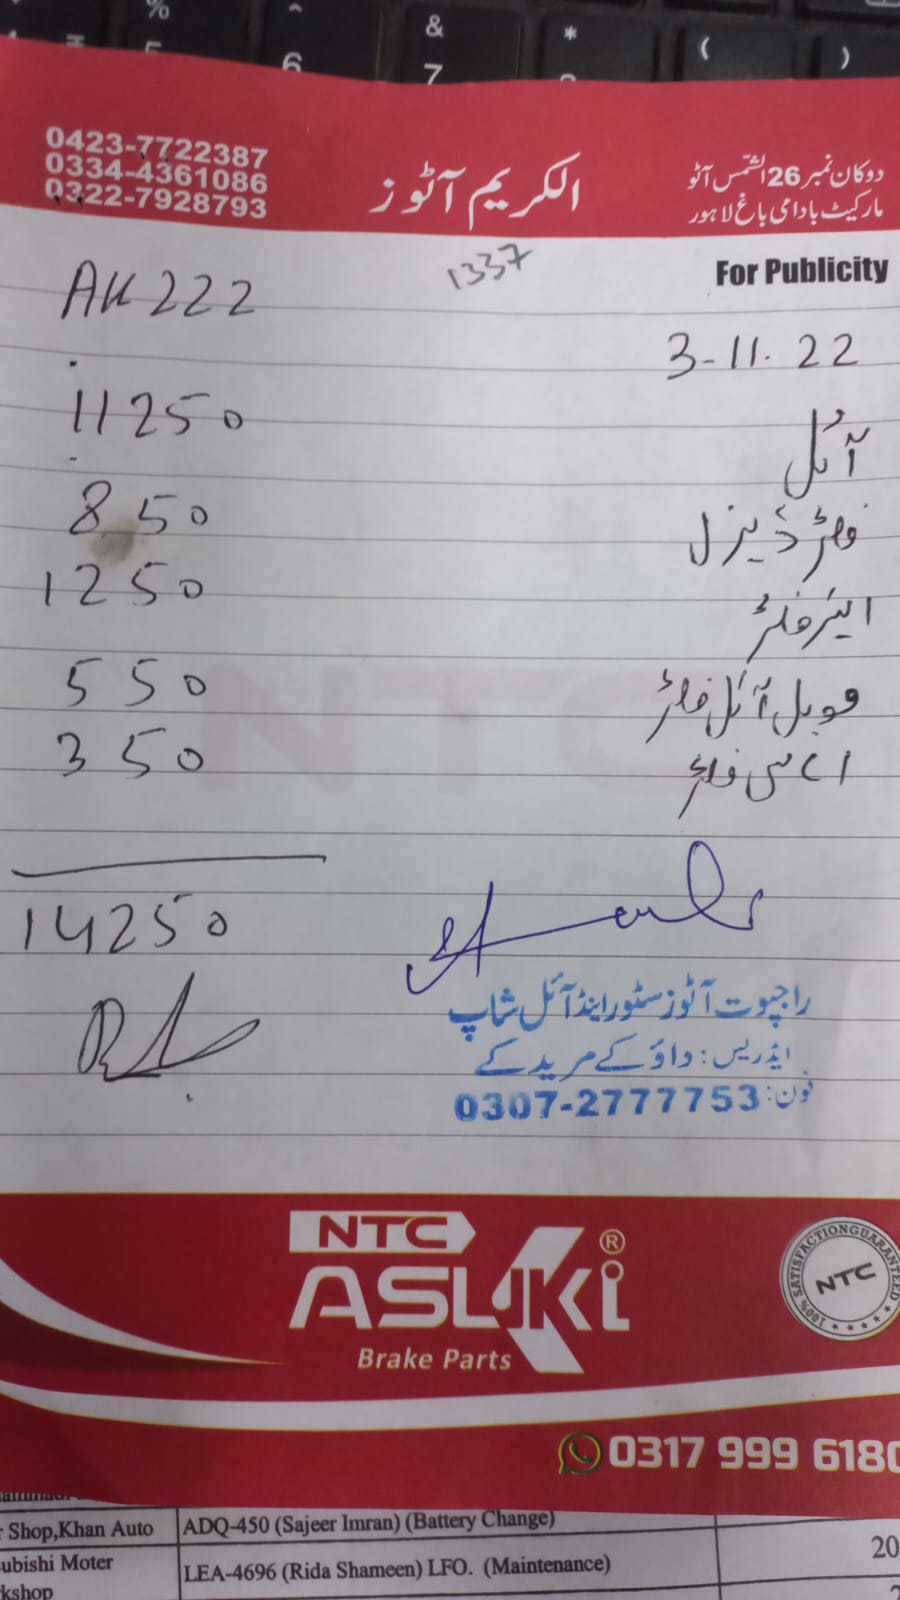 %
^
&
*
(
)
5
6
7
0423-7722387
0334-4361086
0322-7928793
الکریم آٹوز
دوکان نمبر 26 الشمس آٹو
مارکیٹ بادامی باغ لاہور
1337
For Publicity
AK 222
3-11.22
11250 آئل
850 فلٹر ڈیزل
1250 ایئر فلٹر
550 موبل آئل فلٹر
350 اے سی فلٹر
NTC
14250
راجپوت آٹوز سٹور اینڈ آئل شاپ
ایڈریس: داؤکے مریدکے
فون: 0307-2777753
NTC
ASUKI ®
Brake Parts
100% SATISFACTION GUARANTEED
NTC
0317 999 6180
Shop,Khan Auto ADQ-450 (Sajeer Imran) (Battery Change)
20
ubishi Moter LEA-4696 (Rida Shameen) LFO. (Maintenance)
kshop